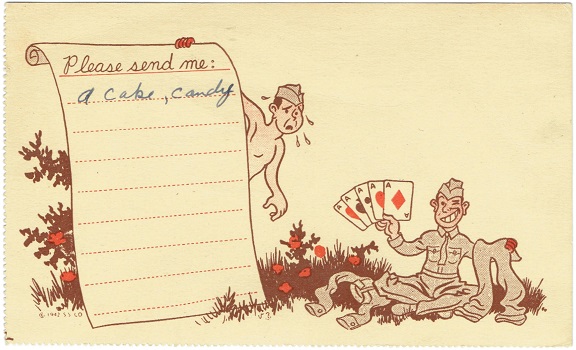 Please send me:
a cake, candy
A A A A A
A
© 1942 S S CO